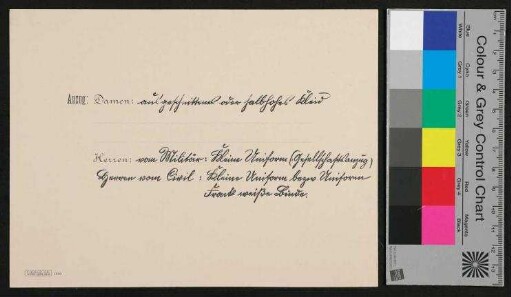 Anzug: Damen: ausgeschnittenes oder halbhohes Kleid
Herren: vom Militär: Kleine Uniform (Gesellschaftsanzug)
Herren vom Civil: Kleine Uniform bezw Uniform
Frack weiße Binde.
Colour & Grey Control Chart
Blue Cyan Green Yellow Red Magenta
White Grey 1 Grey 2 Grey 3 Grey 4 Black